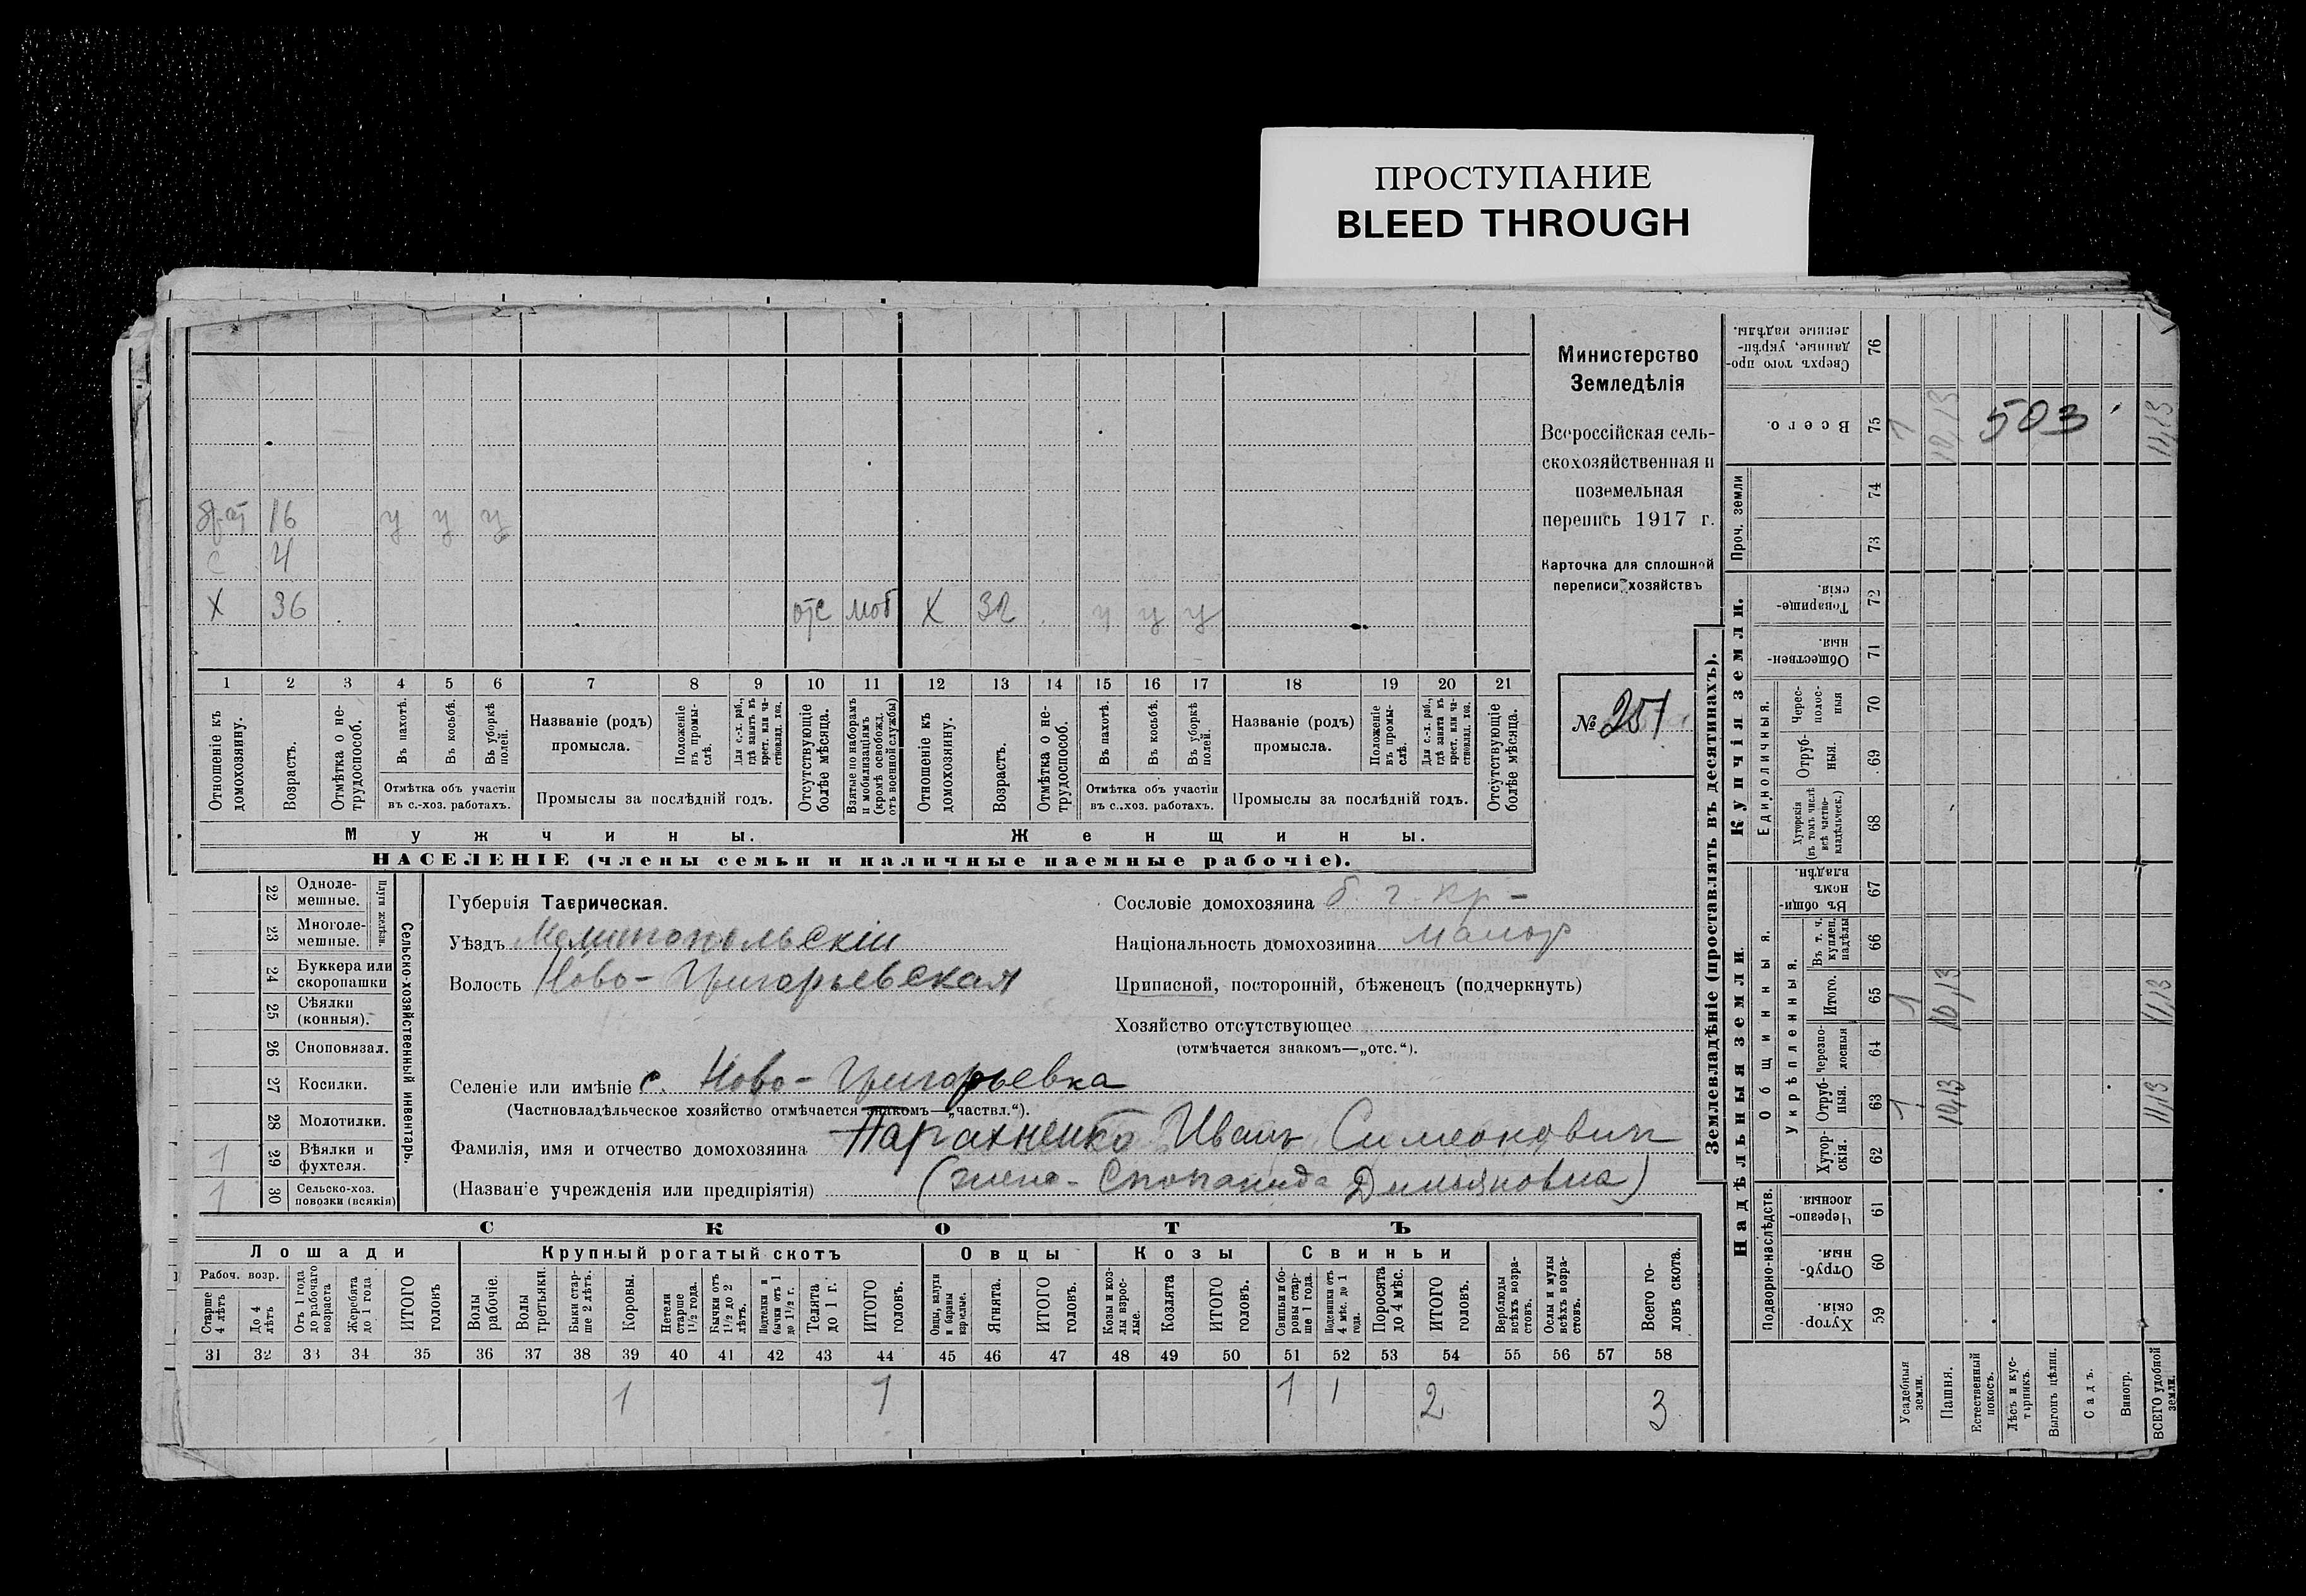 ПРОСТУПАНИЕ
BLEED THROUGH
брат 16 у у у
с 4
Х 36 отс моб Х 32 у у у
1 2 3 4 5 6 7 8 9 10 11 12 13 14 15 16 17 18 19 20 21
Отношеніе къ домохозяину.
Возрастъ.
Отмѣтка о не-трудоспособ.
Въ пахотѣ.
Въ косьбѣ.
Въ уборкѣ полей.
Отмѣтка объ участіи
въ с.-хоз. работахъ.
Названіе (родъ)
промысла.
Положеніе въ промы-слѣ.
Для с.-х. раб., гдѣ занятъ въ крест. или ча-стновлад. хоз.
Промыслы за послѣдній годъ.
Отсутствующіе болѣе мѣсяца.
Взятые по наборамъ и мобилизаціямъ (кромѣ освобожд. отъ военной службы)
Отношеніе къ домохозяину.
Возрастъ.
Отмѣтка о не-трудоспособ.
Въ пахотѣ.
Въ косьбѣ.
Въ уборкѣ полей.
Отмѣтка объ участіи
въ с.-хоз. работахъ.
Названіе (родъ)
промысла.
Положеніе въ промы-слѣ.
Для с.-х. раб., гдѣ занята въ крест. или ча-стновлад. хоз.
Промыслы за послѣдній годъ.
Отсутствующіе болѣе мѣсяца.
Мужчины. Женщины.
НАСЕЛЕНІЕ (члены семьи и наличные наемные рабочіе).
Министерство
Земледѣлія
Всероссійская сель-
скохозяйственная и
поземельная
перепись 1917 г.
Карточка для сплошной
переписи хозяйствъ
№ 251
22 Одноле-мешные.
23 Многоле-мешные.
Плуги желѣзн.
24 Буккера или скоропашки
25 Сѣялки (конныя).
26 Сноповязал.
27 Косилки.
28 Молотилки.
1 29 Вѣялки и фухтеля.
1 30 Сельско-хоз. повозки (всякія)
Сельско-хозяйственный инвентарь.
Губернія Таврическая.
Уѣздъ Мелитопольскій
Волость Ново-Григорьевская
Селеніе или имѣніе с. Ново-Григорьевка
(Частновладѣльческое хозяйство отмѣчается знакомъ—„частвл.“).
Фамилія, имя и отчество домохозяина Парахненко Иванъ Симеоновичъ
(Названіе учрежденія или предпріятія) (жена-
Сословіе домохозяина б. г. кр-
Національность домохозяина малор
Приписной, посторонній, бѣженецъ (подчеркнуть)
Хозяйство отсутствующее
(отмѣчается знакомъ—„отс.“).
СКОТЪ
Лошади Крупный рогатый скотъ Овцы Козы Свиньи
Рабоч. возр.
Старше 4 лѣтъ
До 4 лѣтъ
Отъ 1 года до рабочаго возраста
Жеребята до 1 года
ИТОГО головъ
Волы рабочіе.
Волы третьяки.
Быки стар-ше 2 лѣтъ.
Коровы.
Нетели старше 1½ года.
Бычки отъ 1½ до 2 лѣтъ.
Подтелки и бычки отъ 1 до 1½ г.
Телята до 1 г.
ИТОГО головъ.
Овцы, валухи и бараны взрослые.
Ягнята.
ИТОГО головъ.
Козы и коз-лы взрос-лые.
Козлята
ИТОГО головъ.
Свиньи и бо-ровы стар-ше 1 года.
Подсвинки отъ 4 мѣс. до 1 года.
Поросята до 4 мѣс.
ИТОГО головъ.
Верблюды всѣхъ возра-стовъ.
Ослы и мулы всѣхъ возра-стовъ.
Всего го-ловъ скота.
31 32 33 34 35 36 37 38 39 40 41 42 43 44 45 46 47 48 49 50 51 52 53 54 55 56 57 58
1 1 1 1 2 3
Землевладѣніе (проставлять въ десятинахъ).
Купчія земли.
Надѣльныя земли.
Проч. земли
Единоличныя.
Общинныя.
Укрѣпленныя.
Подворно-наслѣдств.
76 Сверхъ того про-данные, укрѣп-ленные надѣлы.
75 Всего. 1 10,13 503 11,13
74
73
72 Товарище-скія.
71 Обществен-ныя.
70 Черес-полос-ныя
69 Отруб-ныя.
68 Хуторскія (въ томъ числѣ всѣ частно-владѣльческ.)
67 Въ общин-номъ владѣн.
66 Въ т. ч. куплен. надѣлы
65 Итого. 1 10,13 11,13
64 Черезпо-лосныя
63 Отруб-ныя. 1 10,13 11,13
62 Хутор-скія.
61 Черезпо-лосныя.
60 Отруб-ныя.
59 Хутор-скія.
Усадебныя земли.
Пашня.
Естественный покосъ.
Лѣсъ и кус-тарникъ.
Выгонъ цѣлин.
Садъ.
Виногр.
ВСЕГО удобной земли.